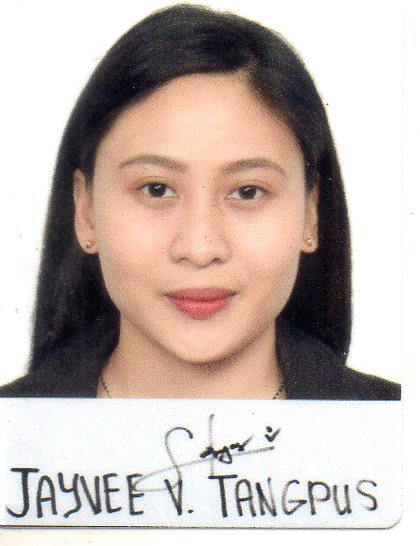 JAYVEE V. TANGPUS